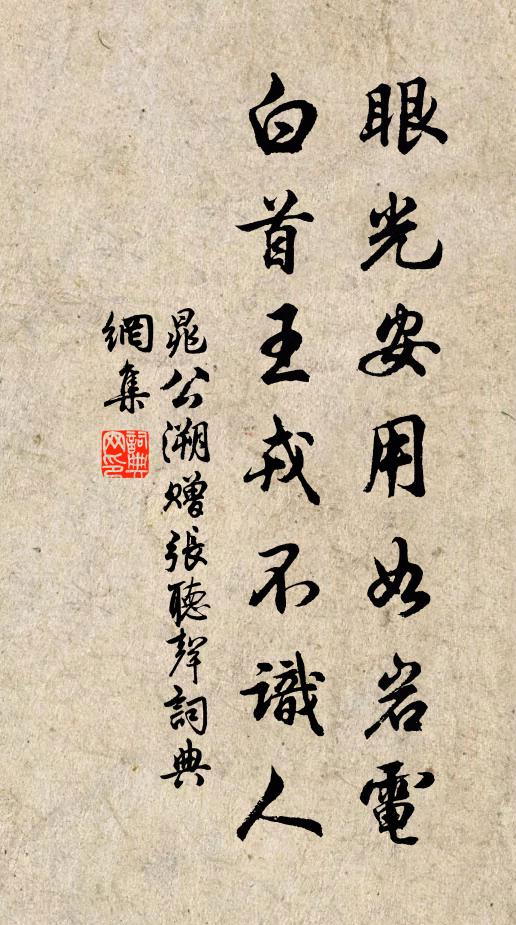 眼光安用如岩電
白首王戎不識人
晁公溯贈張聽聲詞典
網集
詞典網印